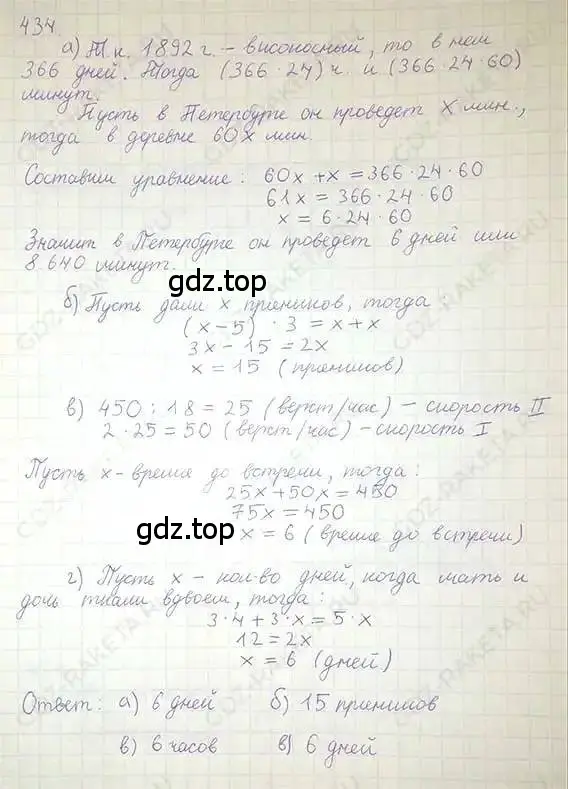 434.
а) Т.к. 1892 г. – високосный, то в нем
366 дней. Тогда (366 · 24) ч. и (366 · 24 · 60)
минут.
Пусть в Петербурге он проведет x мин.,
тогда в деревне 60x мин.
Составим уравнение: 60x + x = 366 · 24 · 60
61x = 366 · 24 · 60
x = 6 · 24 · 60
Значит в Петербурге он проведет 6 дней или
8 640 минут.
gdz.top
б) Пусть дали x пряников, тогда:
(x – 5) · 3 = x + x
3x – 15 = 2x
x = 15 (пряников)
в) 450 : 18 = 25 (верст/час) – скорость II
2 · 25 = 50 (верст/час) – скорость I
Пусть x – время до встречи, тогда:
25x + 50x = 450
75x = 450
gdz.top
x = 6 (время до встречи)
г) Пусть x – кол-во дней, когда мать и
дочь ткали вдвоем, тогда:
3 · 4 + 3 · x = 5 · x
12 = 2x
x = 6 (дней)
Ответ: а) 6 дней б) 15 пряников
в) 6 часов в) 6 дней
GDZ-RAKETA.RU